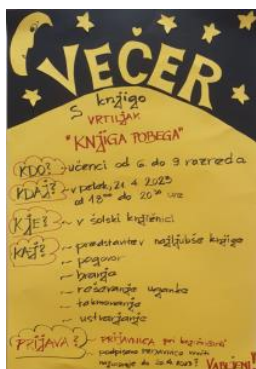 VEČER
S knjigo
VRTILJAK
"KNJIGA POBEGA"
KDO? - učenci od 6. do 9. razreda
KDAJ? - v petek, 21. 4. 2023
od 18⁰⁰ do 20⁰⁰ ure
KJE? - v šolski knjižnici
KAJ? - predstavitev najljubše knjige
- pogovor
- branje
- reševanje uganke
- tekmovanje
- ustvarjanje
PRIJAVA? - PRIJAVNICA pri knjižničarki
podpisano prijavnico vrniti
najkasneje do 20. 4. 2023!
VABLJENI!